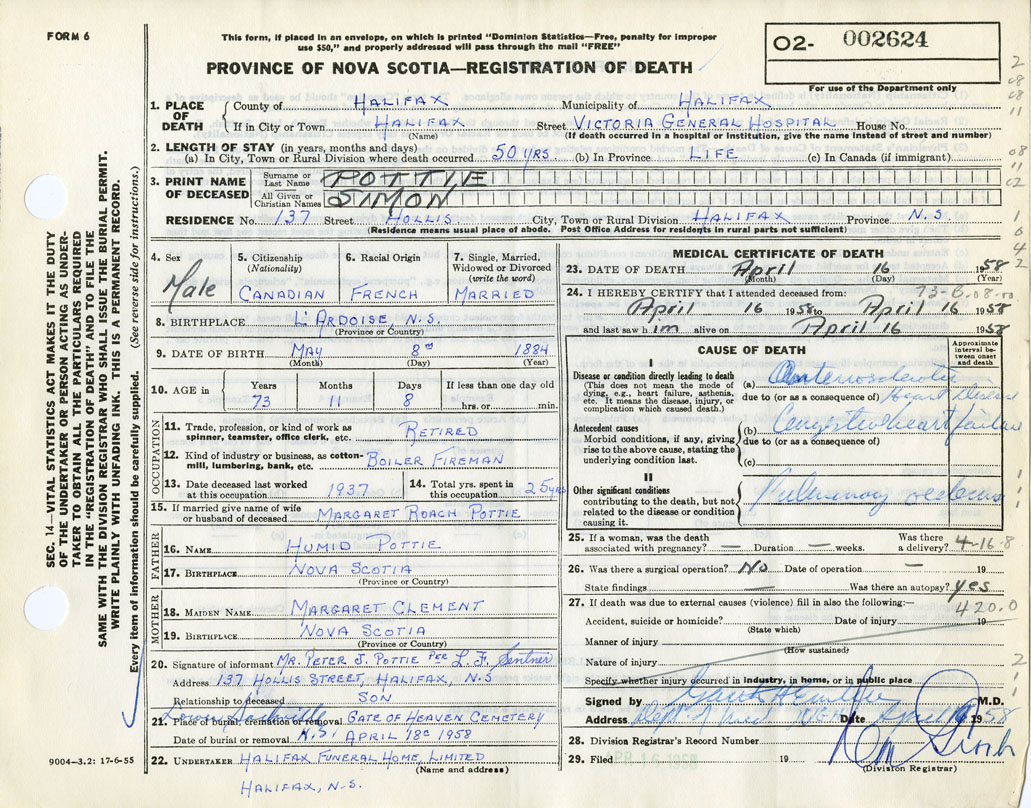 FORM 6
This form, if placed in an envelope, on which is printed "Dominion Statistics—Free, penalty for improper
use $50," and properly addressed will pass through the mail "FREE"
PROVINCE OF NOVA SCOTIA—REGISTRATION OF DEATH
02- 002624
For use of the Department only
1. PLACE OF DEATH County of HALIFAX Municipality of HALIFAX
If in City or Town HALIFAX Street VICTORIA GENERAL HOSPITAL House No.
(Name) (If death occurred in a hospital or institution, give the name instead of street and number)
2. LENGTH OF STAY (in years, months and days)
(a) In City, Town or Rural Division where death occurred 50 YRS. (b) In Province LIFE (c) In Canada (if immigrant)
3. PRINT NAME OF DECEASED
Surname or Last Name POTTIE
All Given or Christian Names SIMON
RESIDENCE No. 137 Street HOLLIS City, Town or Rural Division HALIFAX Province N.S.
(Residence means usual place of abode. Post Office Address for residents in rural parts not sufficient)
4. Sex Male
5. Citizenship (Nationality) CANADIAN
6. Racial Origin FRENCH
7. Single, Married, Widowed or Divorced (write the word) MARRIED
8. BIRTHPLACE L'ARDOISE, N.S.
(Province or Country)
9. DATE OF BIRTH MAY 8 1884
(Month) (Day) (Year)
10. AGE in Years 73 Months 11 Days 8 If less than one day old
hrs. or min.
OCCUPATION
11. Trade, profession, or kind of work as spinner, teamster, office clerk, etc. RETIRED
12. Kind of industry or business, as cotton-mill, lumbering, bank, etc. BOILER FIREMAN
13. Date deceased last worked at this occupation 1937
14. Total yrs. spent in this occupation 25 yrs
15. If married give name of wife or husband of deceased MARGARET ROACH POTTIE
FATHER
16. NAME HUMID POTTIE
17. BIRTHPLACE NOVA SCOTIA
(Province or Country)
MOTHER
18. MAIDEN NAME MARGARET CLEMENT
19. BIRTHPLACE NOVA SCOTIA
(Province or Country)
20. Signature of informant MR. PETER J. POTTIE PER L. F.
Address 137 HOLLIS STREET, HALIFAX, N.S
Relationship to deceased SON
21. Place of burial, cremation or removal GATE OF HEAVEN CEMETERY
Date of burial or removal N.S. APRIL 18 1958
22. UNDERTAKER HALIFAX FUNERAL HOME, LIMITED
(Name and address)
HALIFAX, N.S.
MEDICAL CERTIFICATE OF DEATH
23. DATE OF DEATH April 16 1958
(Month) (Day) (Year)
24. I HEREBY CERTIFY that I attended deceased from:
April 16 1958 to April 16 1958
and last saw him alive on April 16 1958
CAUSE OF DEATH
Approximate interval between onset and death
I
Disease or condition directly leading to death
(This does not mean the mode of dying, e.g., heart failure, asthenia, etc. It means the disease, injury, or complication which caused death.)
(a)
due to (or as a consequence of) Heart Disease
Antecedent causes
Morbid conditions, if any, giving rise to the above cause, stating the underlying condition last.
(b) Congestive heart failure
due to (or as a consequence of)
(c)
II
Other significant conditions
contributing to the death, but not related to the disease or condition causing it.
Pulmonary oedema
25. If a woman, was the death associated with pregnancy? — Duration — weeks. Was there a delivery? 4-16-8
26. Was there a surgical operation? No Date of operation — 19
State findings — Was there an autopsy? yes
27. If death was due to external causes (violence) fill in also the following:—
420.0
Accident, suicide or homicide? Date of injury 19
(State which)
Manner of injury
(How sustained)
Nature of injury
Specify whether injury occurred in industry, in home, or in public place
Signed by M.D.
Address Date April 1958
28. Division Registrar's Record Number
29. Filed 19
(Division Registrar)
SEC. 14—VITAL STATISTICS ACT MAKES IT THE DUTY
OF THE UNDERTAKER OR PERSON ACTING AS UNDER-
TAKER TO OBTAIN ALL THE PARTICULARS REQUIRED
IN THE "REGISTRATION OF DEATH" AND TO FILE THE
SAME WITH THE DIVISION REGISTRAR WHO SHALL ISSUE THE BURIAL PERMIT.
WRITE PLAINLY WITH UNFADING INK. THIS IS A PERMANENT RECORD.
Every item of information should be carefully supplied. (See reverse side for instructions.)
9004—3.2: 17-6-55